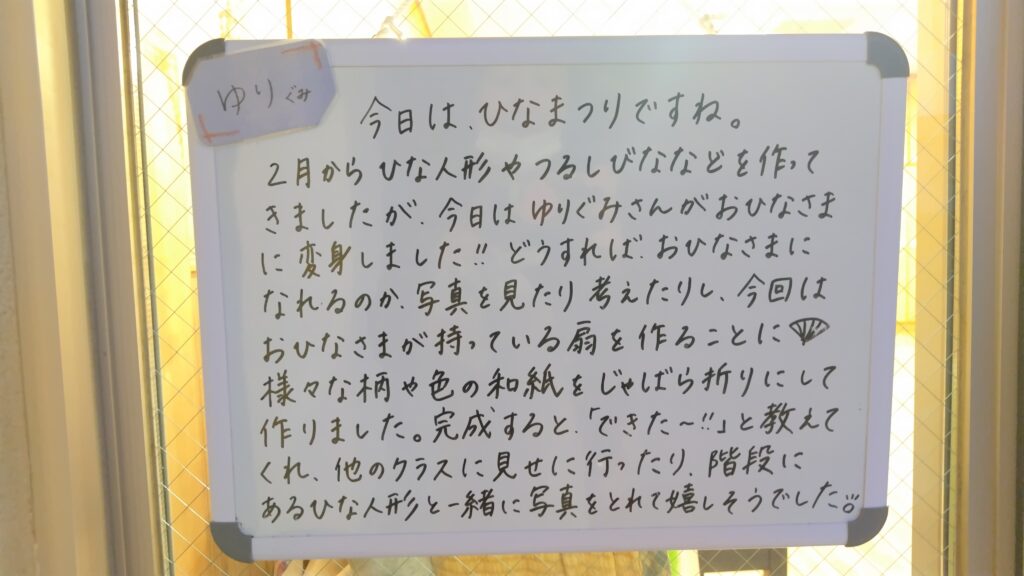 ゆりぐみ
今日は、ひなまつりですね。
2月からひな人形やつるしびななどを作って
きましたが、今日はゆりぐみさんがおひなさま
に変身しました!! どうすれば、おひなさまに
なれるのか、写真を見たり考えたりし、今回は
おひなさまが持っている扇を作ることに
様々な柄や色の和紙をじゃばら折りにして
作りました。完成すると、「できた〜!!」と教えて
くれ、他のクラスに見せに行ったり、階段に
あるひな人形と一緒に写真をとれて嬉しそうでした。